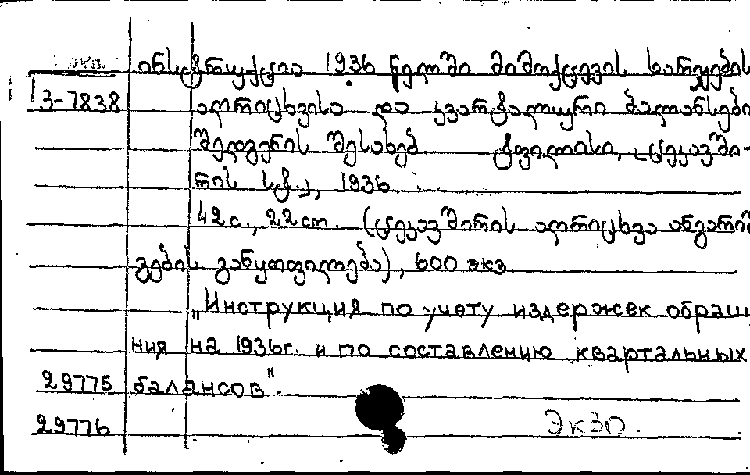 ინსტრუქცია 1936 წელში მიმოქცევის ხარჯების
3-7838 აღრიცხვისა და კვარტალური ბალანსების
შედგენის შესახებ ტფილისი, ცეკავში-
რის სტ., 1936.
42 с., 22 cm. (ცეკავშირის აღრიცხვა ანგარიშ
გების განყოფილება), 600 экз
„Инструкция по учету издержек обращ
ния на 1936г. и по составлению квартальных
29775 балансов".
29776 ЭкЗО.